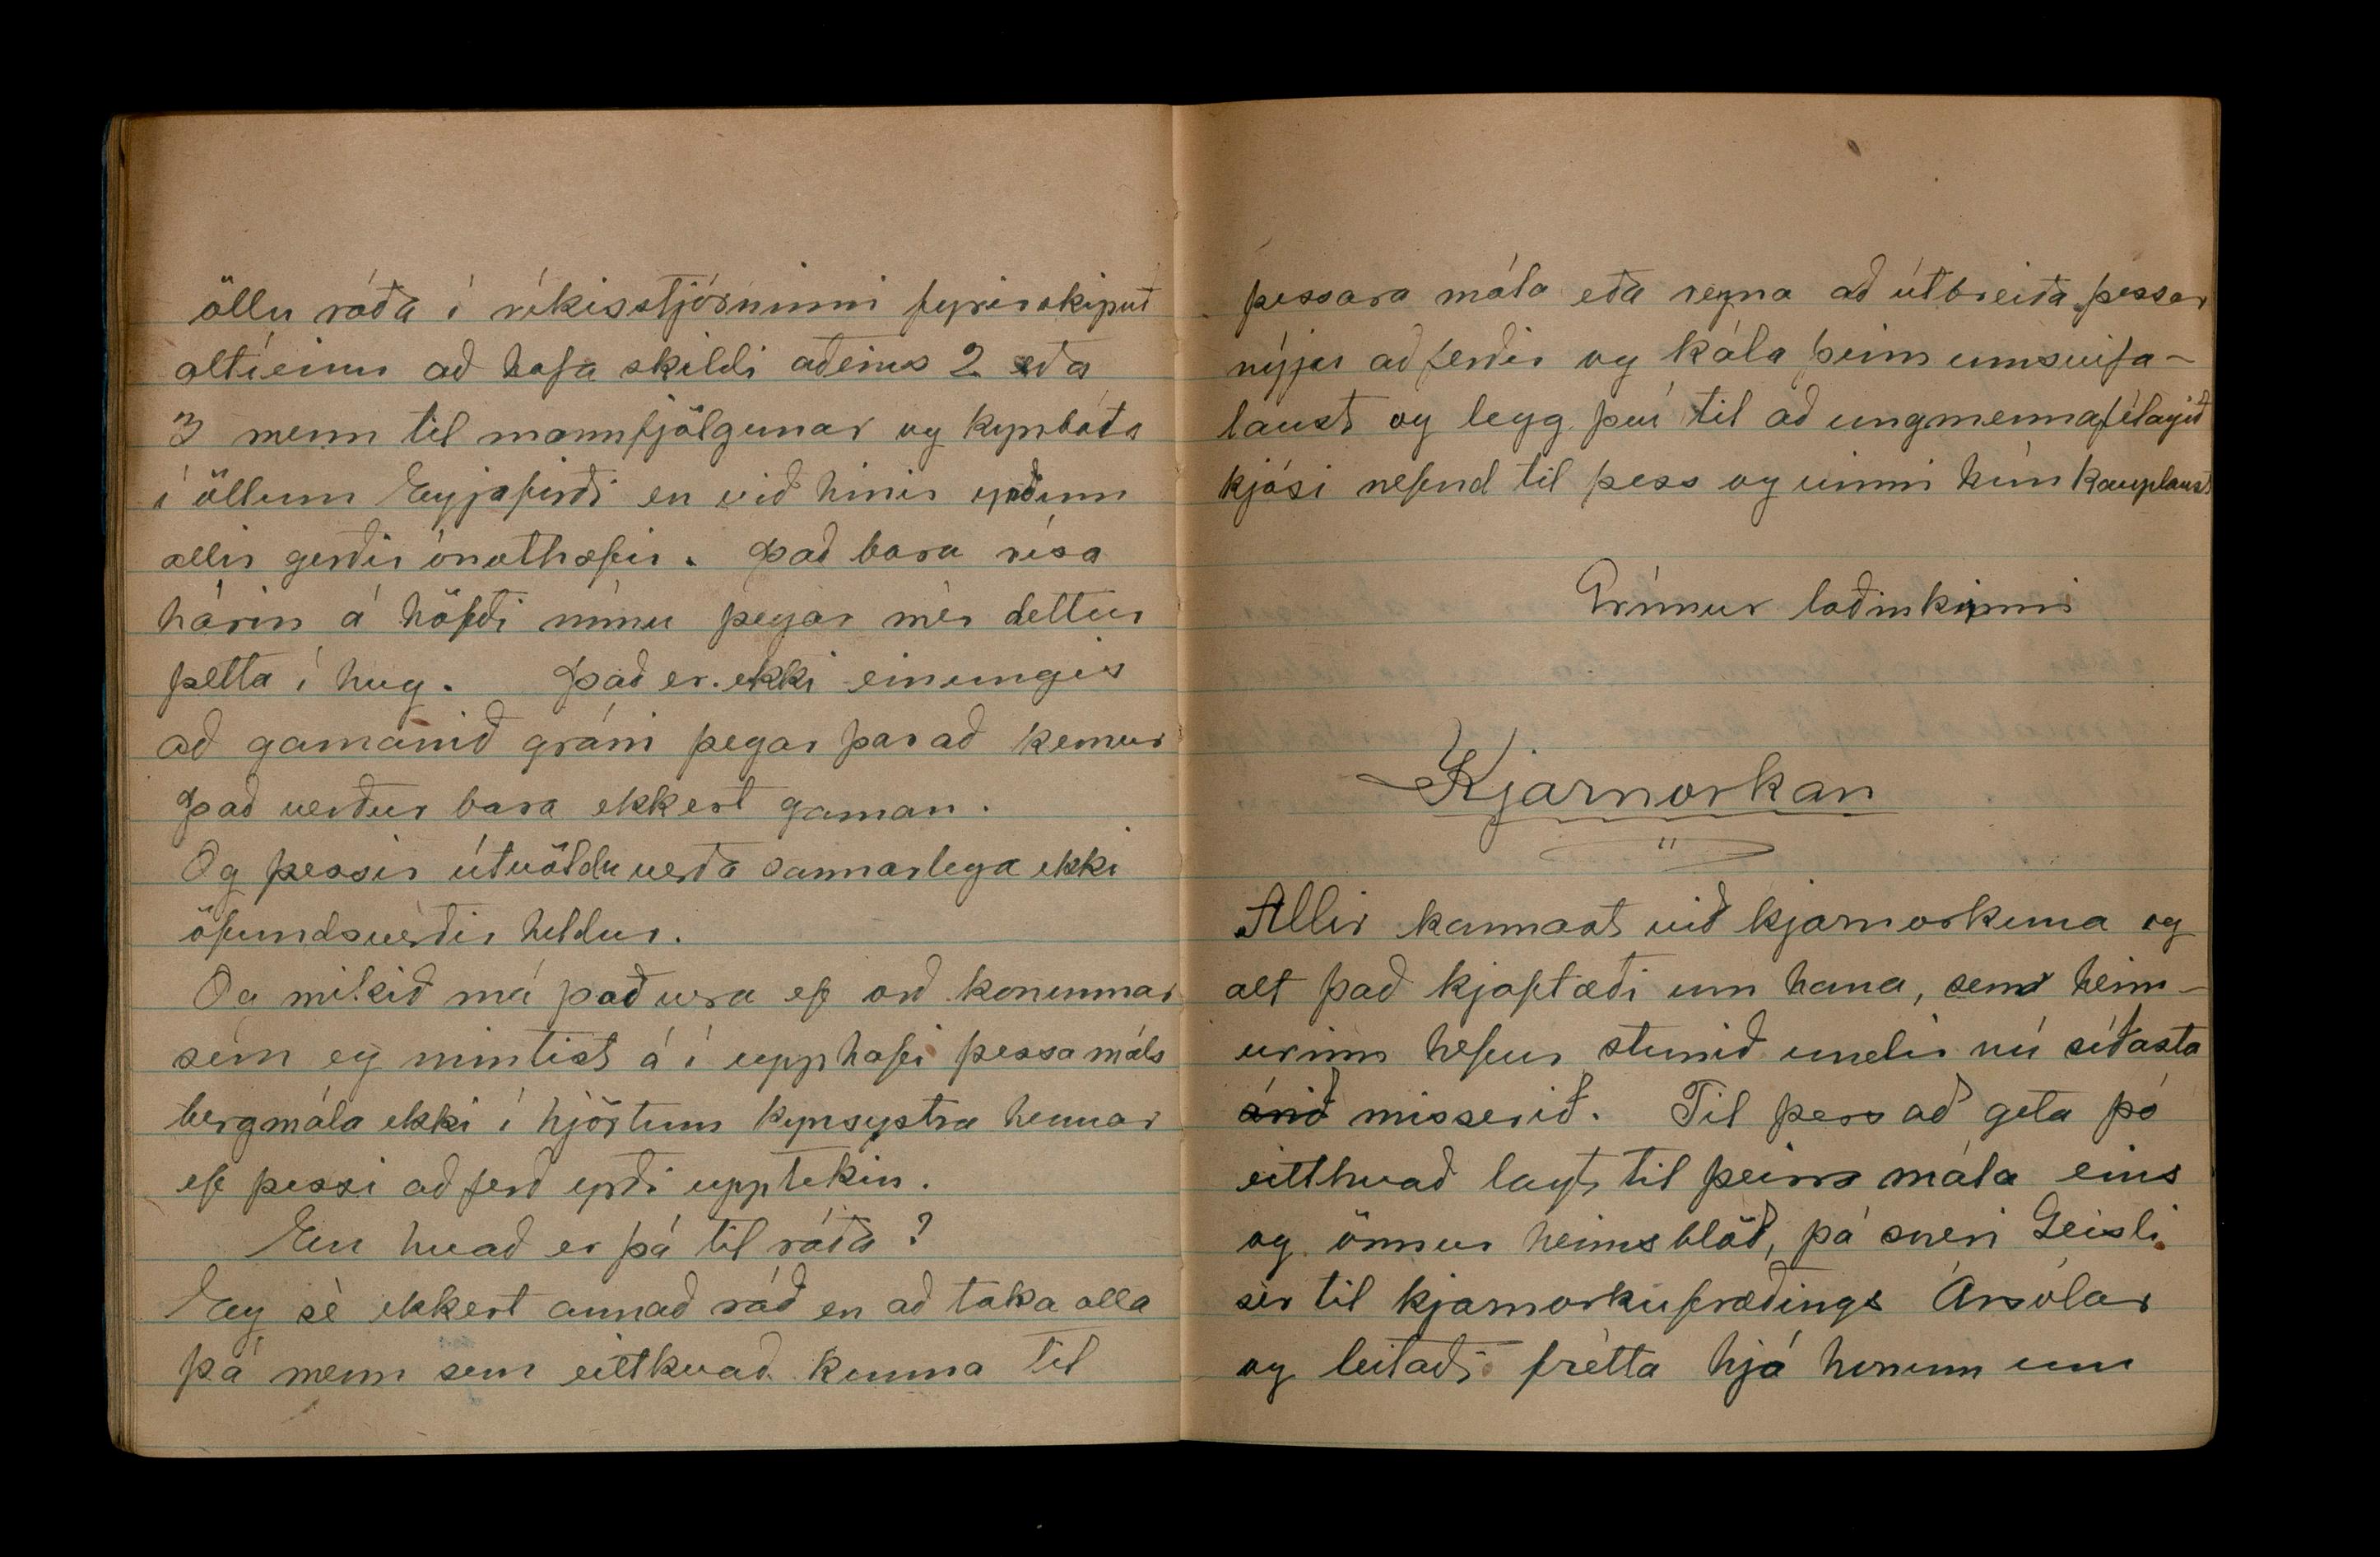 öllu ráða í ríkisstjórninni fyrirskipuð
altíeinu að hafa skildi aðeins 2 eða
3 menn til mannfjölgunar og kynbóta
í öllum Eyjafirði en við hinir yrðum
allir gerðir ónothæfir. Það bara rísa
hárin á höfði mínu þegar mér dettur
þetta í hug. Það er ekki einungis
að gamanið gráni þegar þar að kemur
Það verður bara ekkert gaman.
Og þessir útvöldu verða sannarlega ekki
öfundsverðir heldur.
Og mikið má það vera ef orð konunnar
sem eg mintist á í upphafi þessa máls
bergmála ekki í hjörtum kynsystra hennar
ef þessi aðferð yrði upptekin.
En hvað er þá til ráða?
Eg sé ekkert annað ráð en að taka alla
þá menn sem eitthvað kunna til
þessara mála eða reyna að útbreiða þessar
nýju aðferðir og kála þeim umsvifa-
laust og legg því til að ungmennafélagið
kjósi nefnd til þess og vinni hún kauplaust
Grímur loðinkinni
Kjarnorkan
"
Allir kannast við kjarnorkuna og
alt það kjaftæði um hana, sem heim-
urinn hefur stunið undir nú síðasta
árið misserið. Til þess að geta þó
eitthvað lagt til þeirra mála eins
og önnur heimsblöð, þá sneri Geisli
sér til kjarnorkufræðings Ársólar
og leitaði frétta hjá honum um